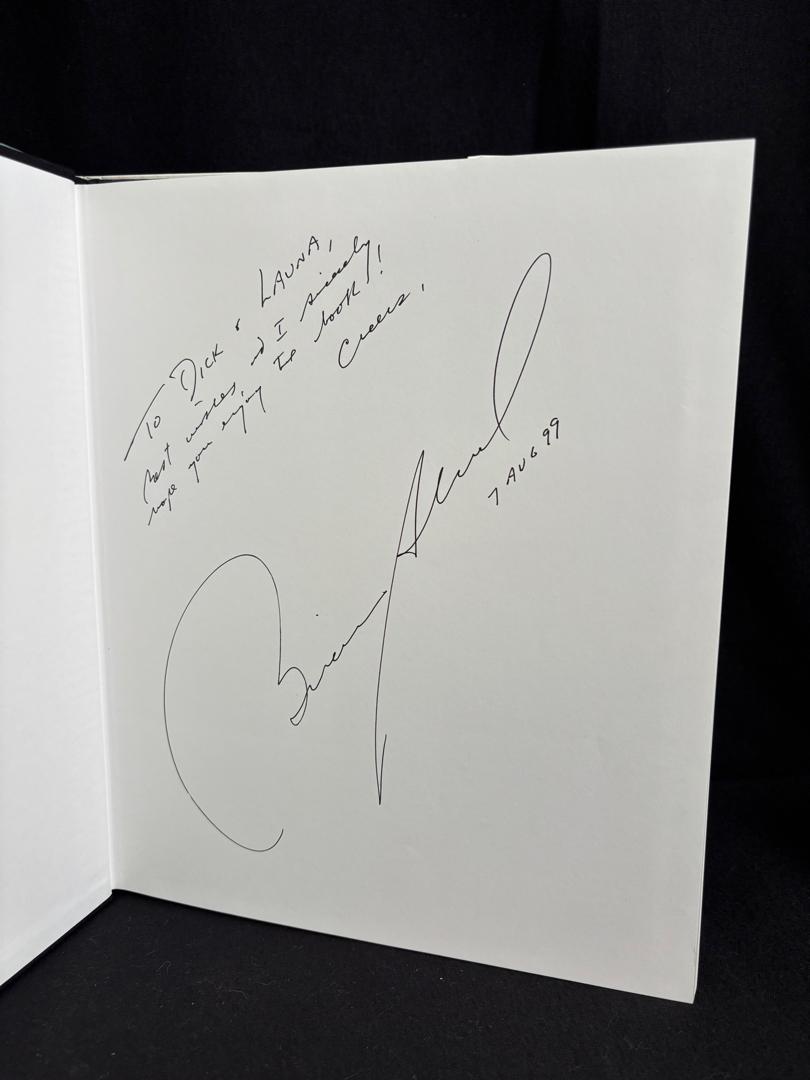 To DICK & LAUNA,
Best wishes, and I sincerely
hope you enjoy the book!
Cheers,
Brian
7 AUG 99